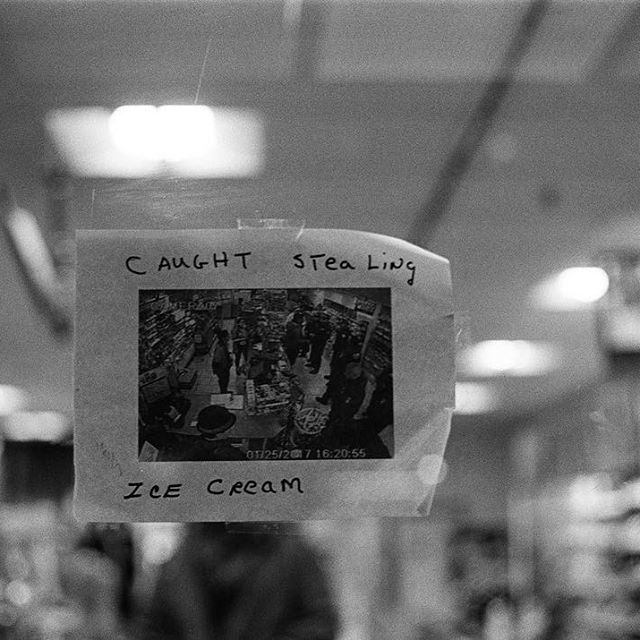 CAUGHT STeaLiNg
01/25/2017 16:20:55
ICE CReam